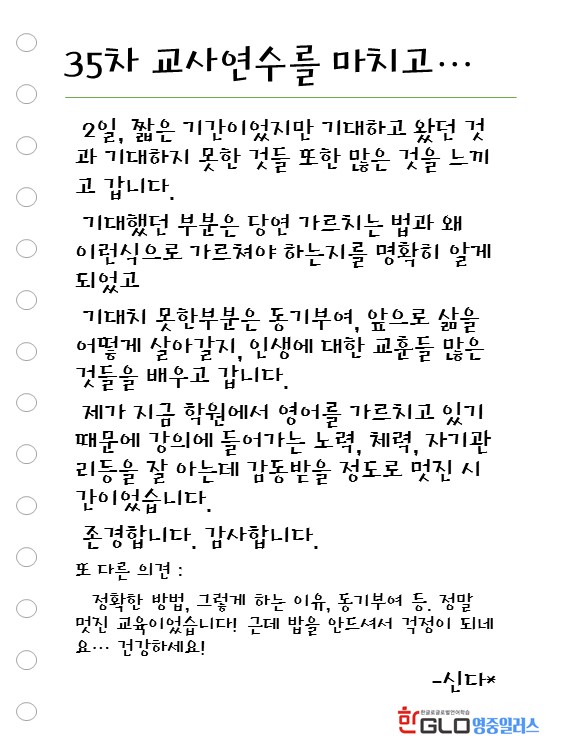 35차 교사연수를 마치고…
2일, 짧은 기간이었지만 기대하고 왔던 것
과 기대하지 못한 것들 또한 많은 것을 느끼
고 갑니다.
기대했던 부분은 당연 가르치는 법과 왜
이런식으로 가르쳐야 하는지를 명확히 알게
되었고
기대치 못한부분은 동기부여, 앞으로 삶을
어떻게 살아갈지, 인생에 대한 교훈들 많은
것들을 배우고 갑니다.
제가 지금 학원에서 영어를 가르치고 있기
때문에 강의에 들어가는 노력, 체력, 자기관
리등을 잘 아는데 감동받을 정도로 멋진 시
간이었습니다.
존경합니다. 감사합니다.
또 다른 의견 :
정확한 방법, 그렇게 하는 이유, 동기부여 등. 정말
멋진 교육이었습니다! 근데 밥을 안드셔서 걱정이 되네
요… 건강하세요!
-신다*
한글로글로벌언어학습
한GLO영중일러스